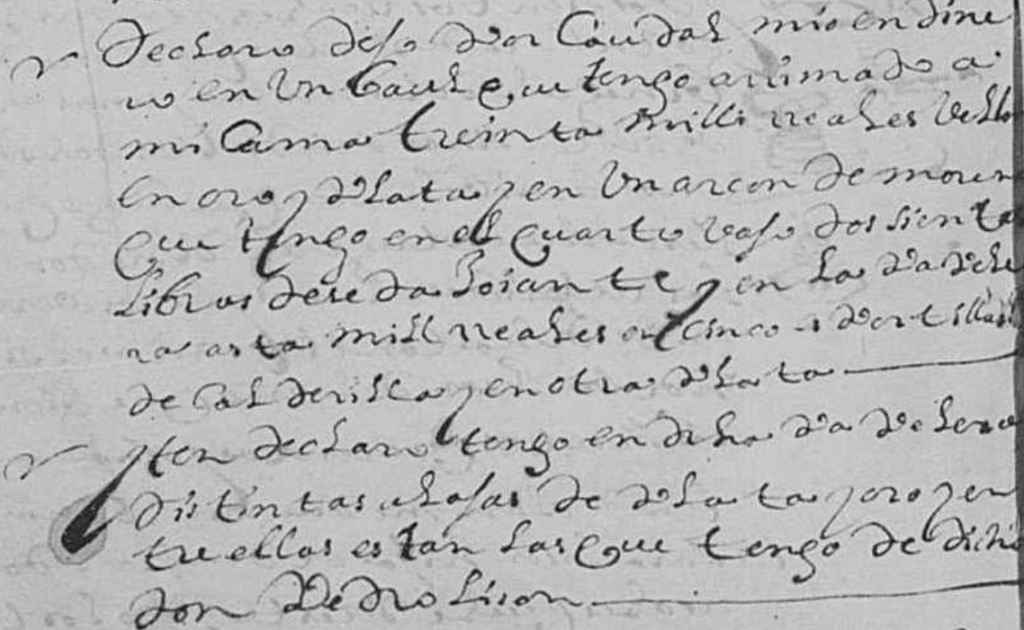 Declaro dejo por Caudal mio en dine
ro en Un baul que tengo arrimado a
mi Cama treinta mill reales Vello
en oro y plata y en Un arcon de
que tengo en el quarto bajo dossienta
Libras de seda Joiante y en La papele
ra asta mill reales en Cinco portillas
de Calderilla y en otra plata
Yten declaro tengo en dcha papelera
distintas alajas de plata y oro y en
tre ellas estan Las que tengo de dicho
don Pedro Lison